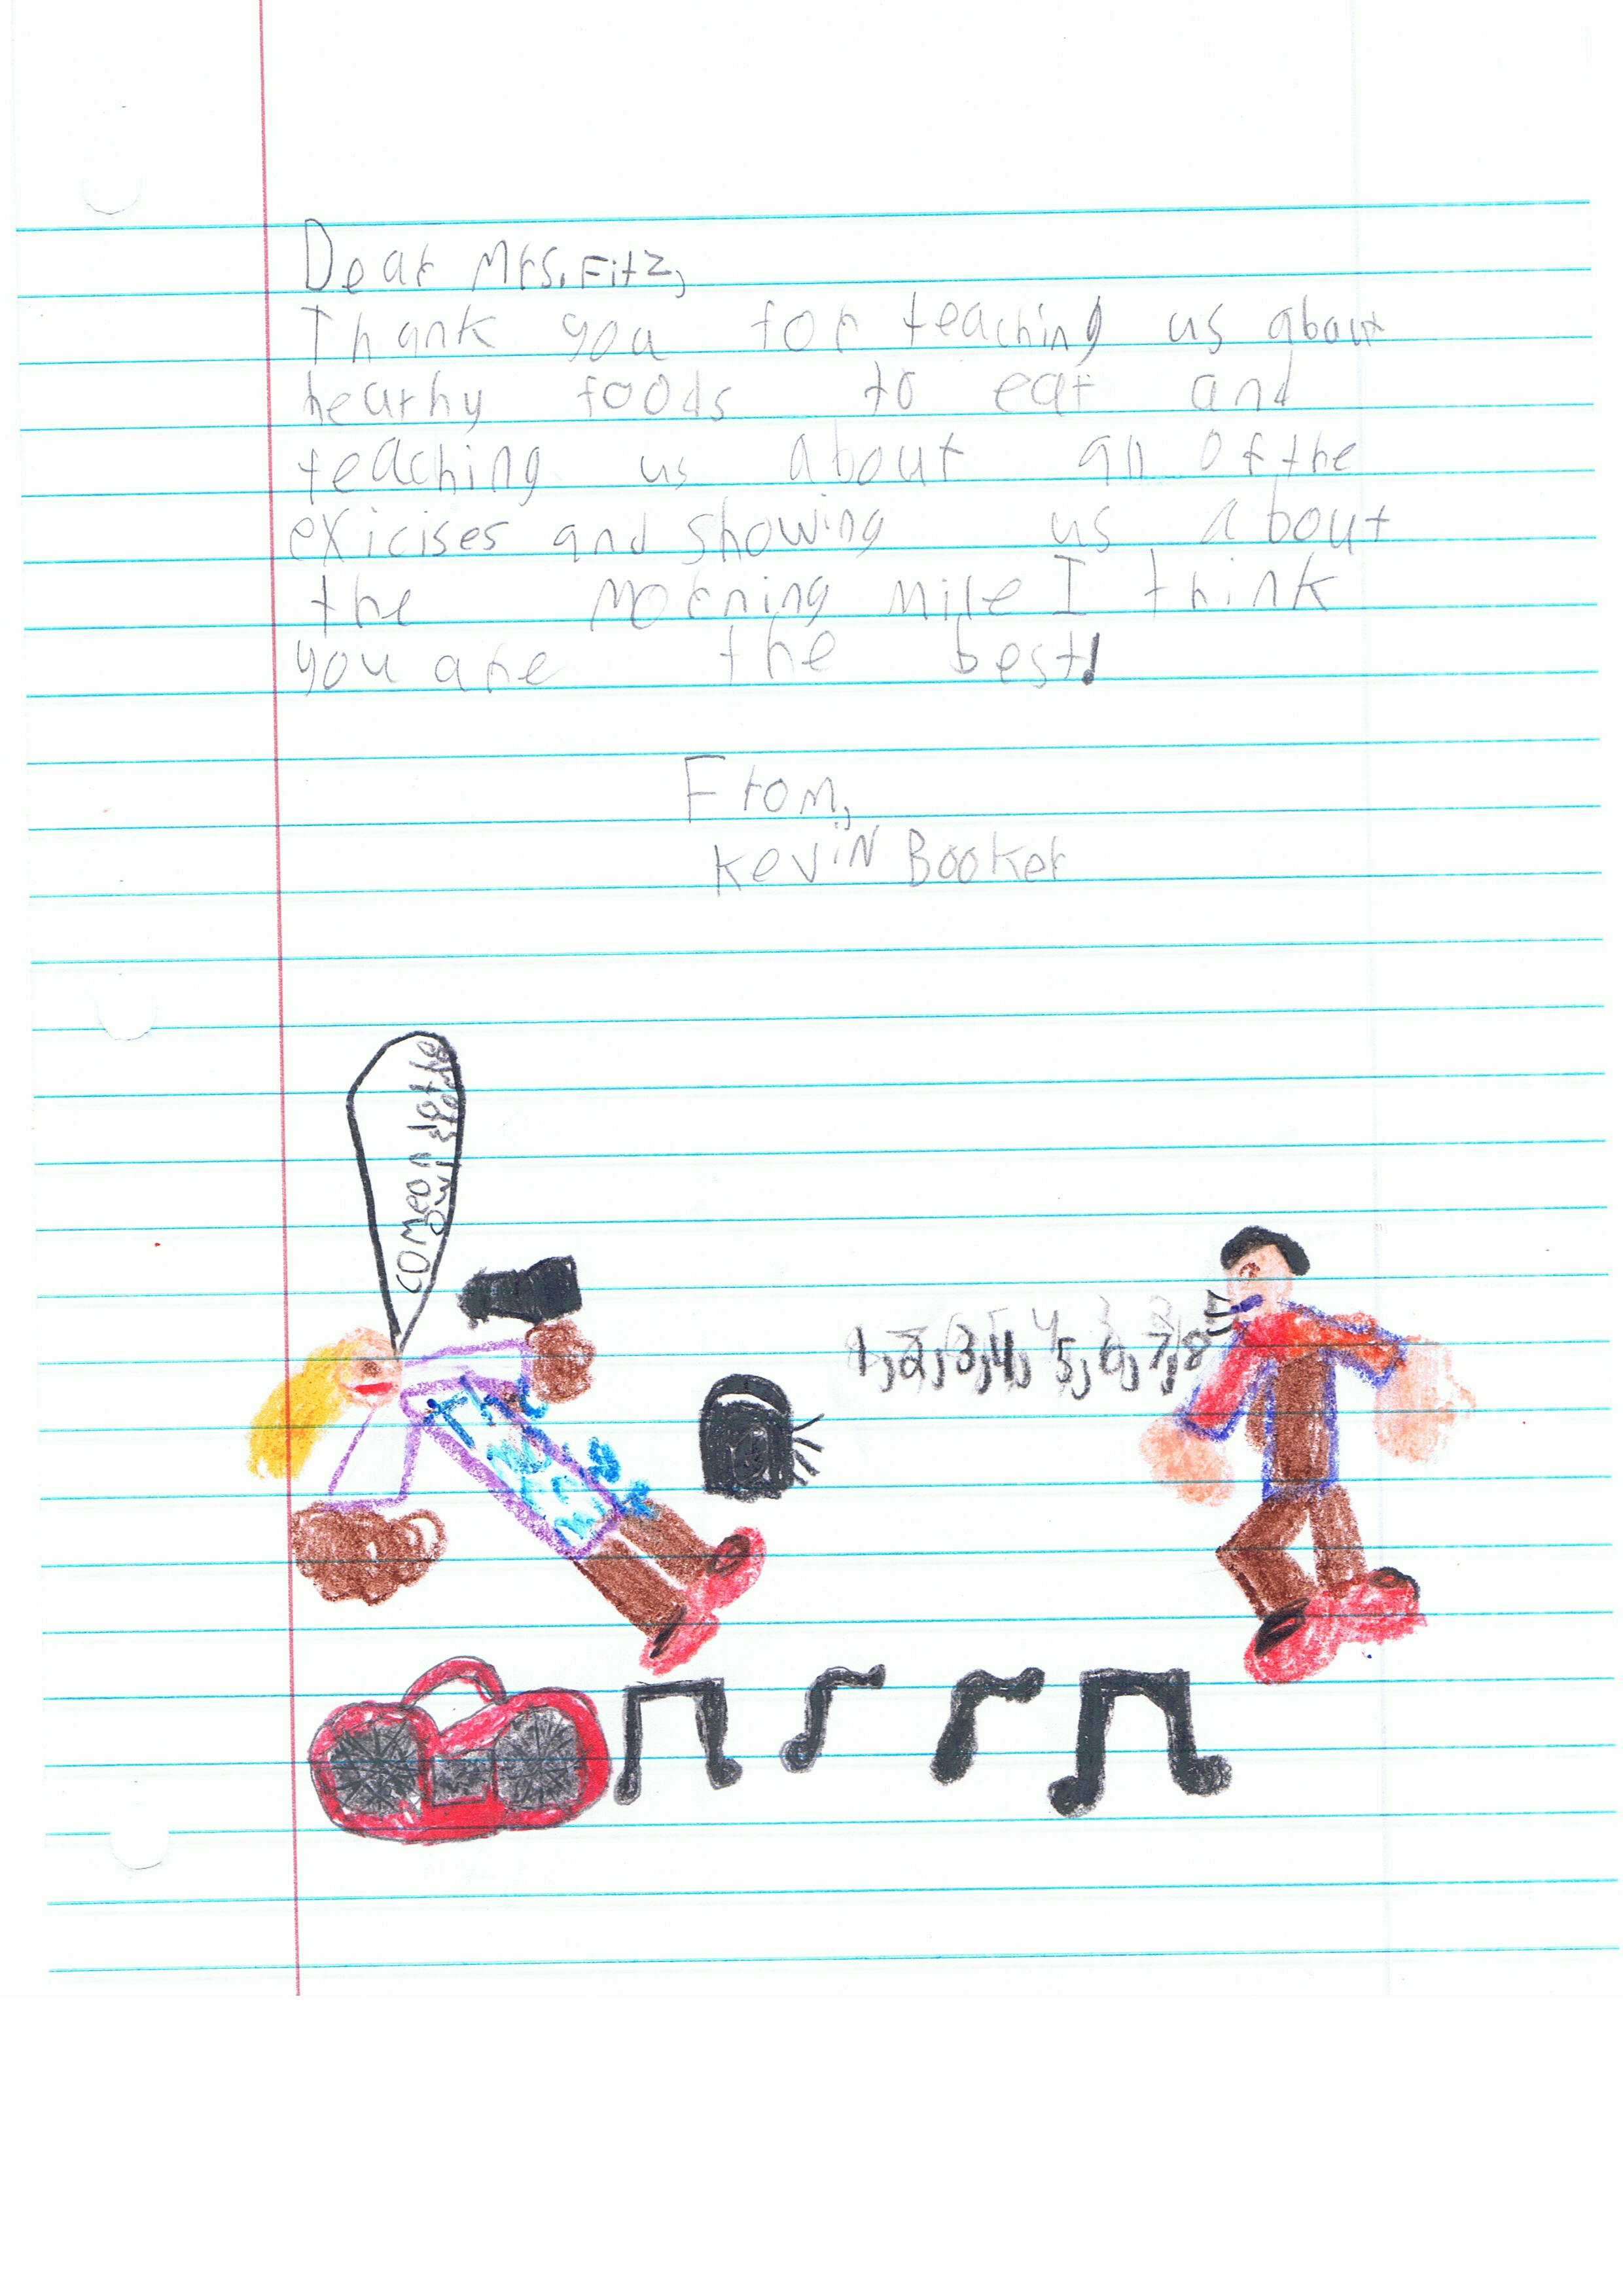 Dear Mrs. Fitz,
Thank you for teaching us about
hearhy foods to eat and
teaching us about all of the
exicises and showing us about
the morning mile I think
you are the best!
From,
Kevin Booker
come on do the
1, 2, 3, 4, 5, 6, 7, 8
The